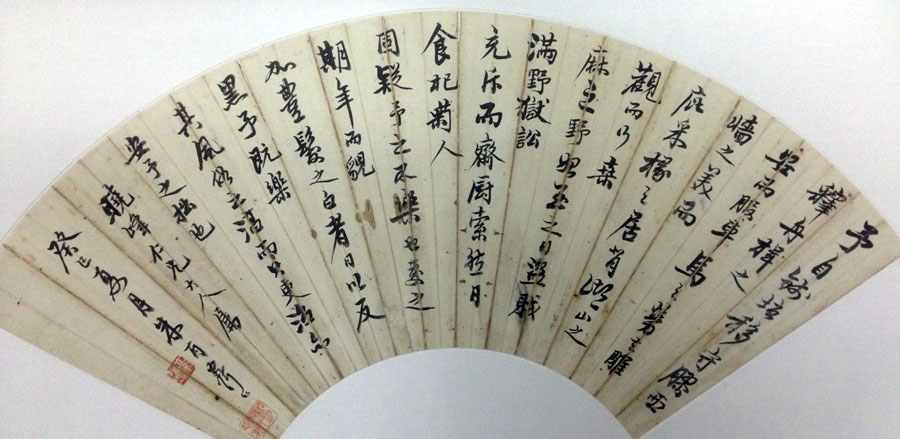 予自錢塘移守膠西
釋舟楫之
安而服車馬之勞去雕
墻之美而
庇采椽之居背湖山之
觀而行桑
麻之野始至之日盜賊
滿野獄訟
充斥而齋厨索然日
食杞菊人
固疑予之不樂也處之
期年而貌
加豐髮之白者日以反
黑予既樂
其風俗之淳而其吏民亦
安予之拙也
曉峰仁兄大人屬
癸巳夏月朱